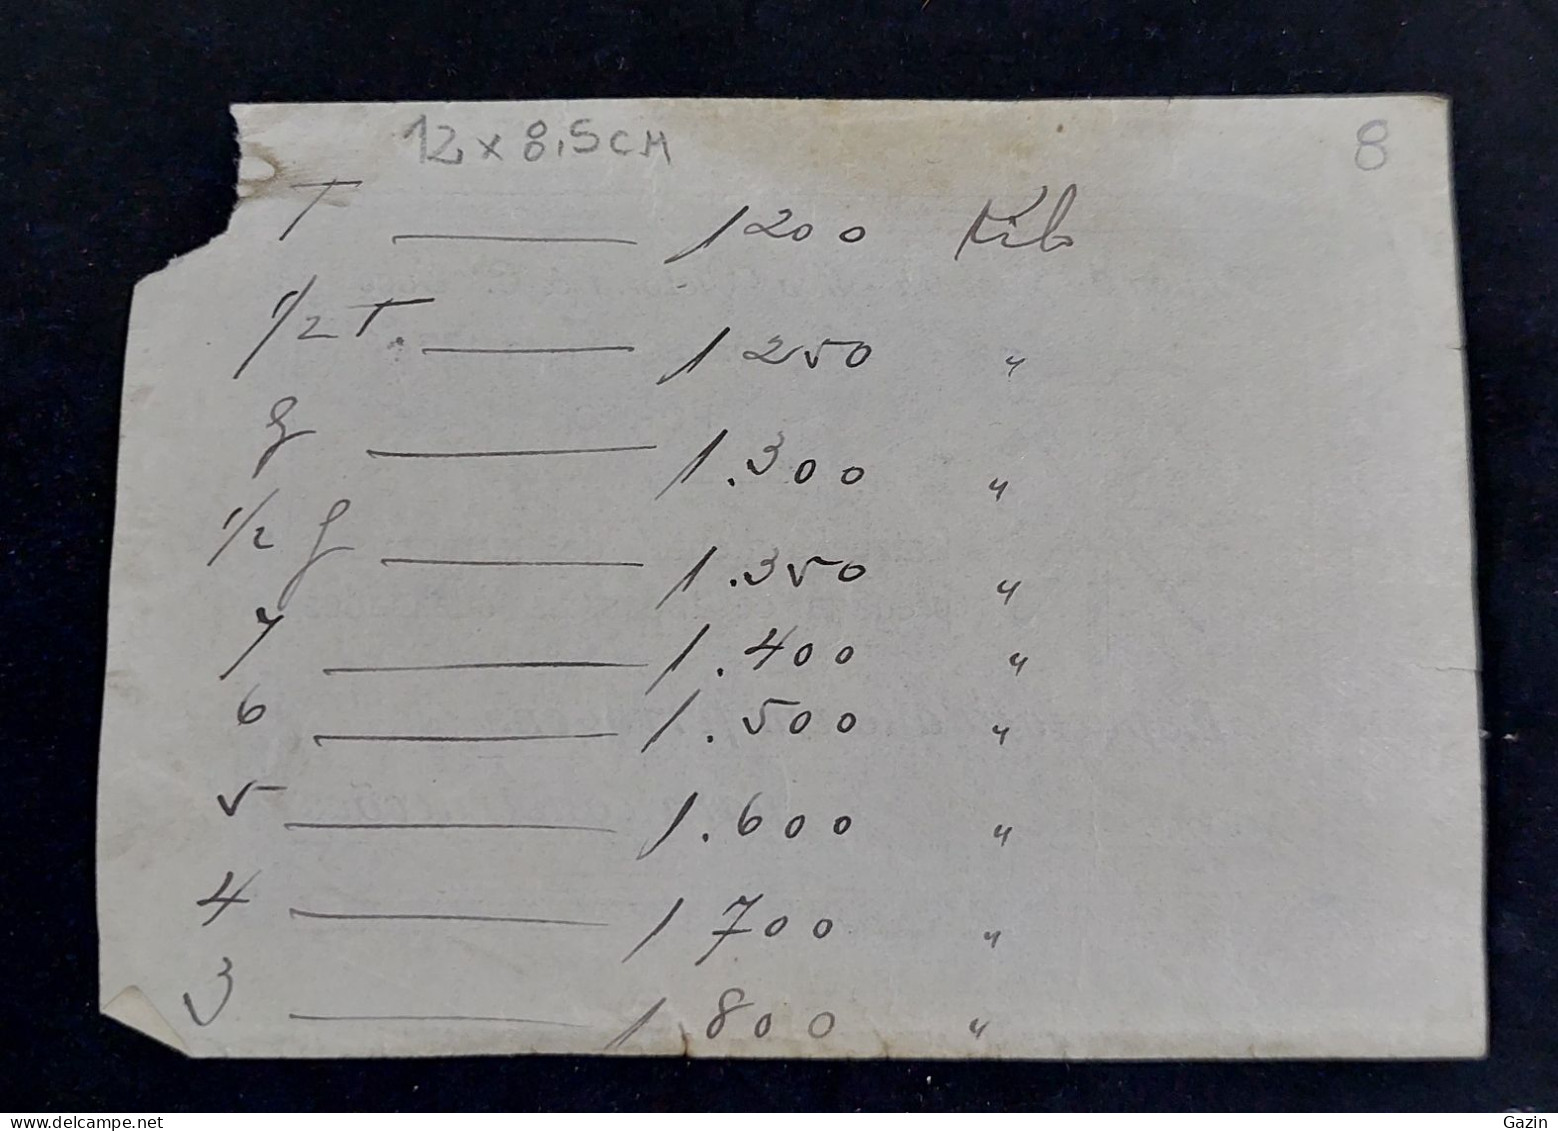 12 x 8,5 CM 8
T — 1200 Kilo
1/2 T. — 1250 "
— 1.300 "
1/2 — 1.350 "
7 — 1.400 "
6 — 1.500 "
5 — 1.600 "
4 — 1 700 "
3 — 1 800 "
www.delcampe.net Gazin